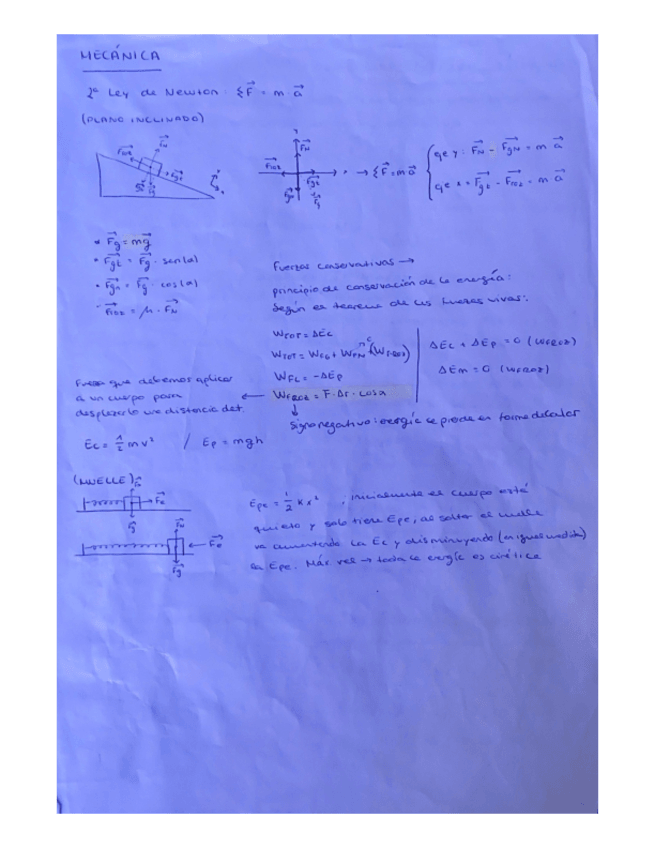 MECÁNICA
2ª Ley de Newton: Σ F⃗ = m · a⃗
(PLANO INCLINADO)
→ Σ F⃗ = m a⃗
eje y: F⃗N - F⃗gN = m a⃗
eje x: F⃗gt - F⃗roz = m a⃗
* F⃗g = m g⃗
• F⃗gt = F⃗g · sen(α)
• F⃗gn = F⃗g · cos(α)
• F⃗roz = μ · F⃗N
Fuerzas conservativas →
principio de conservación de la energía:
Según el teorema de las fuerzas vivas:
WTOT = ΔEc
WTOT = WFG + WFN + (WFROZ)
WFC = -ΔEp
WFROZ = F · Δr · cos α
ΔEc + ΔEp = 0 (WFROZ)
ΔEm = 0 (WFROZ)
Fuerza que debemos aplicar
a un cuerpo para
desplazarlo una distancia det.
Signo negativo: energía se pierde en forma de calor
Ec = 1/2 m v² / Ep = mgh
(MUELLE)
Epe = 1/2 K x² , inicialmente el cuerpo está
quieto y solo tiene Epe, al soltar el muelle
va aumentando la Ec y disminuyendo (en igual medida)
la Epe. Máx vel → toda la energía es cinética